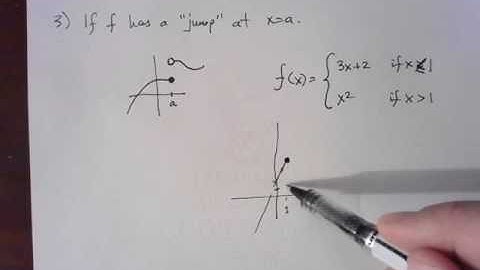 3) If f has a "jump" at x=a.
f(x)= { 3x+2 if x≤1
x² if x>1
a
1